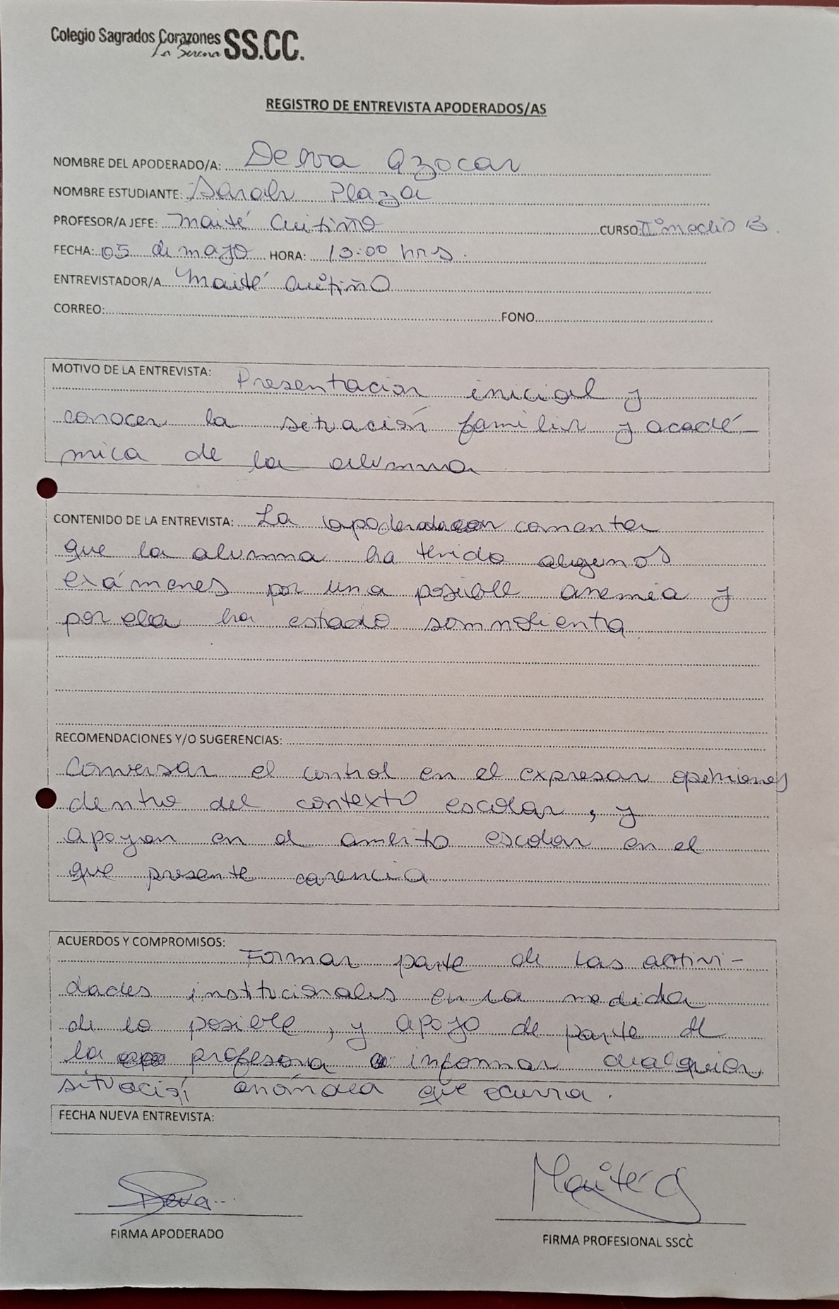 Colegio Sagrados Corazones SS.CC.
La Serena
REGISTRO DE ENTREVISTA APODERADOS/AS
NOMBRE DEL APODERADO/A: Azocar
NOMBRE ESTUDIANTE: Sarah Plaza
PROFESOR/A JEFE: Maité CURSO II° medio B.
FECHA: 05 de mayo HORA: 13:00 hrs.
ENTREVISTADOR/A Maité
CORREO: FONO
MOTIVO DE LA ENTREVISTA: Presentación inicial y
conocer la situación familiar y acadé-
mica de la alumna
CONTENIDO DE LA ENTREVISTA: La apoderada comenta
que la alumna ha tenido algunos
exámenes por una posible anemia y
por ella ha estado somnolienta
RECOMENDACIONES Y/O SUGERENCIAS:
Conversar el control en el expresar opiniones
dentro del contexto escolar, y
apoyar en el ambito escolar en el
que presente carencia
ACUERDOS Y COMPROMISOS: Formar parte de las activi-
dades institucionales en la medida
de lo posible, y apoyo de parte de
la profesora a informar cualquier
situació anómala que ocurra.
FECHA NUEVA ENTREVISTA:
FIRMA APODERADO
FIRMA PROFESIONAL SSCC